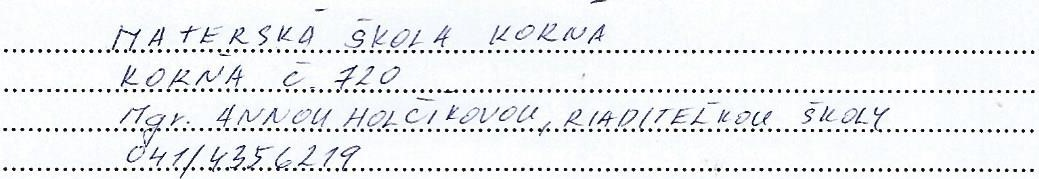 MATERSKÁ ŠKOLA KORŇA
KORŇA Č. 720
Mgr. ANNOU HOLČÍKOVOU, RIADITEĽKOU ŠKOLY
041/4356219